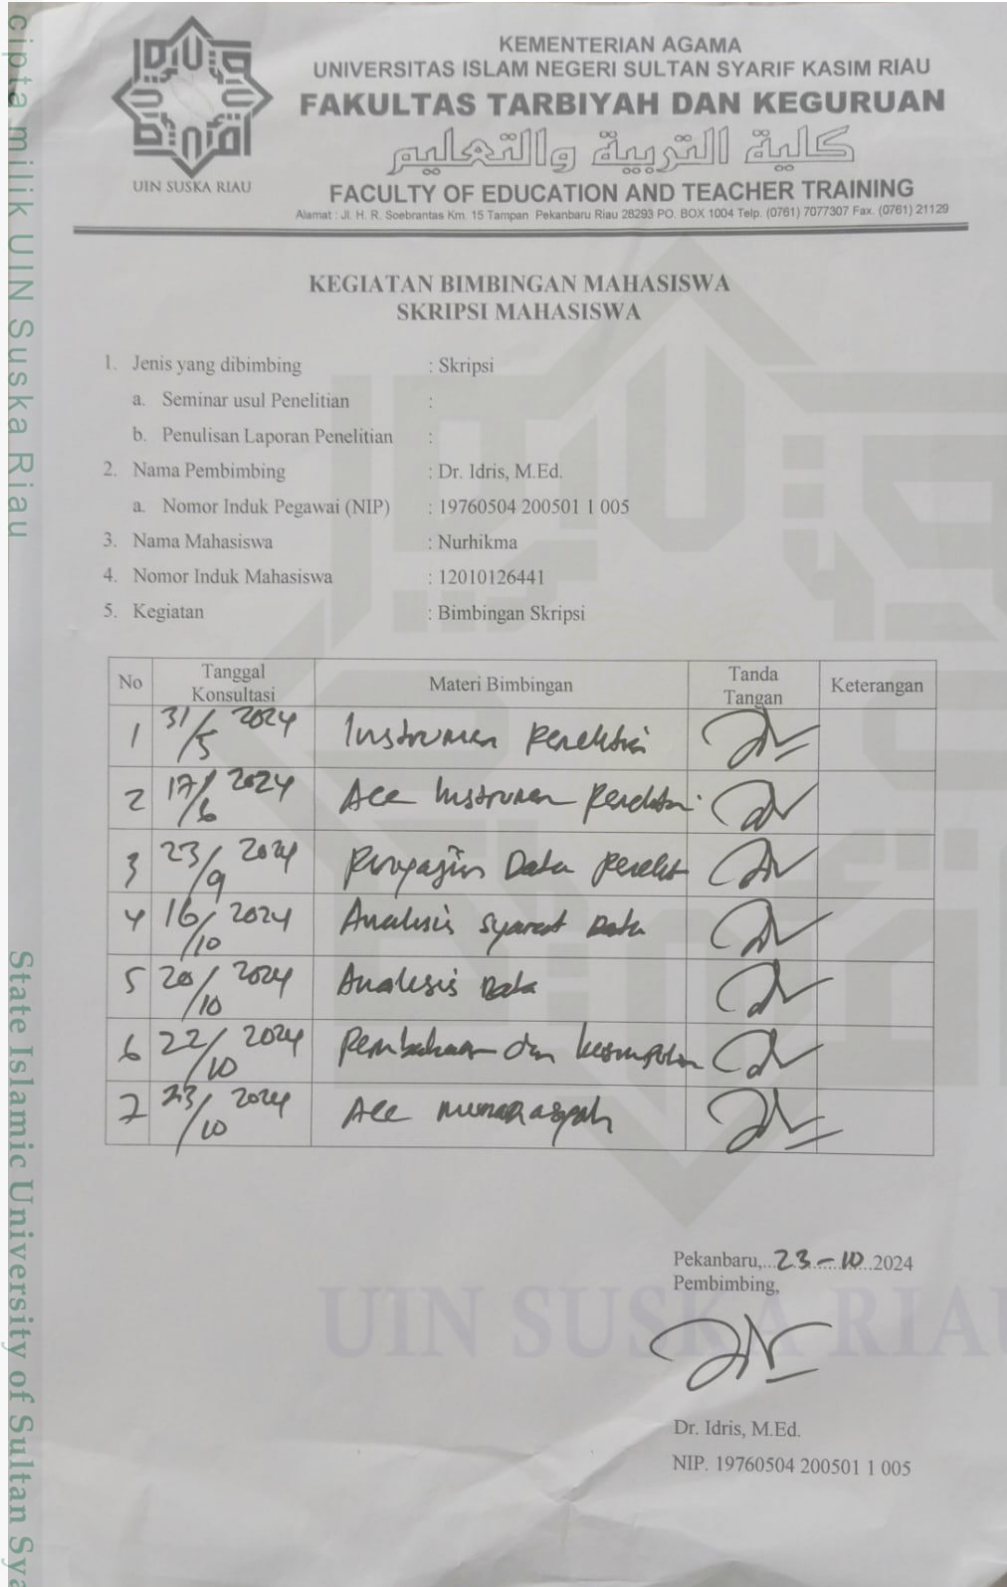 cipta milik UIN Suska Riau
State Islamic University of Sultan Sya
UIN SUSKA RIAU
KEMENTERIAN AGAMA
UNIVERSITAS ISLAM NEGERI SULTAN SYARIF KASIM RIAU
FAKULTAS TARBIYAH DAN KEGURUAN
كلية التربية والتعليم
FACULTY OF EDUCATION AND TEACHER TRAINING
Alamat : Jl. H. R. Soebrantas Km. 15 Tampan Pekanbaru Riau 28293 PO. BOX 1004 Telp. (0761) 7077307 Fax. (0761) 21129
KEGIATAN BIMBINGAN MAHASISWA
SKRIPSI MAHASISWA
1. Jenis yang dibimbing : Skripsi
a. Seminar usul Penelitian :
b. Penulisan Laporan Penelitian :
2. Nama Pembimbing : Dr. Idris, M.Ed.
a. Nomor Induk Pegawai (NIP) : 19760504 200501 1 005
3. Nama Mahasiswa : Nurhikma
4. Nomor Induk Mahasiswa : 12010126441
5. Kegiatan : Bimbingan Skripsi
No Tanggal Konsultasi Materi Bimbingan Tanda Tangan Keterangan
1 31/5 2024 Instrumen Penelitian
2 17/6 2024 Acc Instrumen Penelitian
3 23/9 2024 Penyajian Data Penelit
4 16/10 2024 Analisis syarat Data
5 20/10 2024 Analisis Data
6 22/10 2024 Pembahasan dan kesimpulan
7 23/10 2024 Acc munaqasyah
Pekanbaru,...23-10...2024
Pembimbing,
UIN SUSKA RIAU
Dr. Idris, M.Ed.
NIP. 19760504 200501 1 005